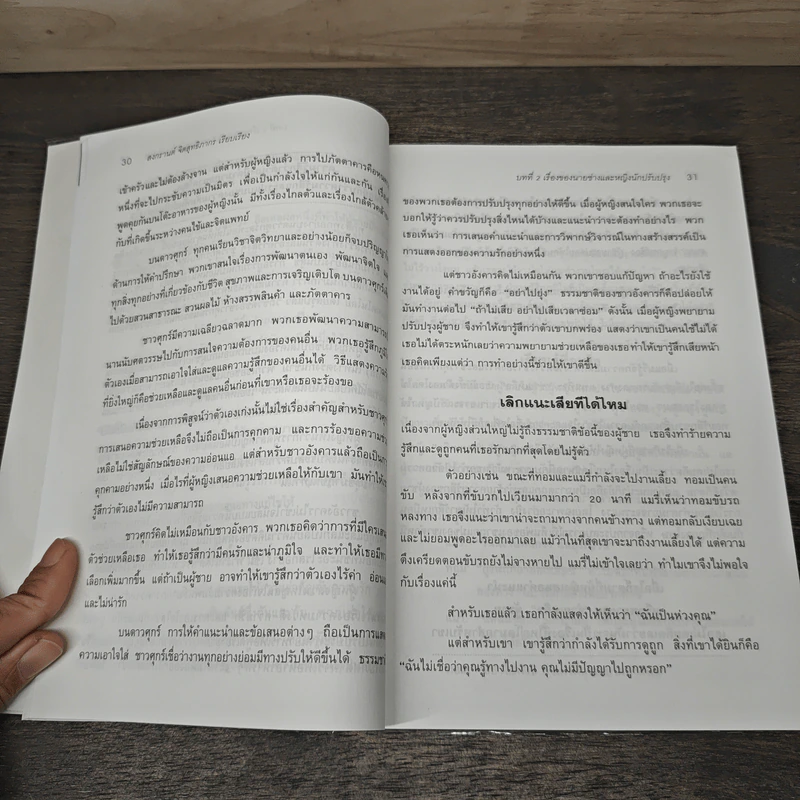 30 สงกรานต์ จิตสุทธิภากร เรียบเรียง
เข้าครัวและไม่ต้องล้างจาน แต่สำหรับผู้หญิงแล้ว การไปภัตตาคารคือหน
หนึ่งที่จะไปกระชับความเป็นมิตร เพื่อเป็นกำลังใจให้แก่กันและกัน เรื่อง
พูดคุยกันบนโต๊ะอาหารของผู้หญิงนั้น มีทั้งเรื่องไกลตัวและเรื่องใกล้ตัวคล้าย
กับที่เกิดขึ้นระหว่างคนไข้และจิตแพทย์
บนดาวศุกร์ ทุกคนเรียนวิชาจิตวิทยาและอย่างน้อยก็จบปริญญา
ด้านการให้คำปรึกษา พวกเขาสนใจเรื่องการพัฒนาตนเอง พัฒนาจิตใจ แ
ทุกสิ่งทุกอย่างที่เกี่ยวข้องกับชีวิต สุขภาพและการเจริญเติบโต บนดาวศุกร์เ
ไปด้วยสวนสาธารณะ สวนผลไม้ ห้างสรรพสินค้า และภัตตาคาร
ชาวศุกร์มีความเฉลียวฉลาดมาก พวกเธอพัฒนาความสามารถ
นานนับศตวรรษไปกับการสนใจความต้องการของคนอื่น พวกเธอรู้สึกภูมิ
ตัวเองเมื่อสามารถเอาใจใส่และดูแลความรู้สึกของคนอื่นได้ วิธีแสดงความ
ที่ยิ่งใหญ่ก็คือช่วยเหลือและดูแลคนอื่นก่อนที่เขาหรือเธอจะร้องขอ
เนื่องจากการพิสูจน์ว่าตัวเองเก่งนั้นไม่ใช่เรื่องสำคัญสำหรับชาวศุก
การเสนอความช่วยเหลือจึงไม่ถือเป็นการคุกคาม และการร้องขอความช่ว
เหลือไม่ใช่สัญลักษณ์ของความอ่อนแอ แต่สำหรับชาวอังคารแล้วถือเป็นการ
คุกคามอย่างหนึ่ง เมื่อไรที่ผู้หญิงเสนอความช่วยเหลือให้กับเขา มันทำให้เ
รู้สึกว่าตัวเองไม่มีความสามารถ
ชาวศุกร์คิดไม่เหมือนกับชาวอังคาร พวกเธอคิดว่าการที่มีใครเสน
ตัวช่วยเหลือเธอ ทำให้เธอรู้สึกว่ามีคนรักและน่าภูมิใจ และทำให้เธอมีทา
เลือกเพิ่มมากขึ้น แต่ถ้าเป็นผู้ชาย อาจทำให้เขารู้สึกว่าตัวเองไร้ค่า อ่อนแ
และไม่น่ารัก
บนดาวศุกร์ การให้คำแนะนำและข้อเสนอต่างๆ ถือเป็นการแสด
ความเอาใจใส่ ชาวศุกร์เชื่อว่างานทุกอย่างย่อมมีทางปรับให้ดีขึ้นได้ ธรรมชา
บทที่ 2 เรื่องของนายช่างและหญิงนักปรับปรุง 31
ของพวกเธอต้องการปรับปรุงทุกอย่างให้ดีขึ้น เมื่อผู้หญิงสนใจใคร พวกเธอจะ
บอกให้รู้ว่าควรปรับปรุงสิ่งไหนได้บ้างและแนะนำว่าจะต้องทำอย่างไร พวก
เธอเห็นว่า การเสนอคำแนะนำและการวิพากษ์วิจารณ์ในทางสร้างสรรค์เป็น
การแสดงออกของความรักอย่างหนึ่ง
แต่ชาวอังคารคิดไม่เหมือนกัน พวกเขาชอบแก้ปัญหา ถ้าอะไรยังใช้
งานได้อยู่ คำขวัญก็คือ “อย่าไปยุ่ง” ธรรมชาติของชาวอังคารก็คือปล่อยให้
มันทำงานต่อไป “ถ้าไม่เสีย อย่าไปเสียเวลาซ่อม” ดังนั้น เมื่อผู้หญิงพยายาม
ปรับปรุงผู้ชาย จึงทำให้เขารู้สึกว่าตัวเขาบกพร่อง แสดงว่าเขาเป็นคนใช้ไม่ได้
เธอไม่ได้ตระหนักเลยว่าความพยายามช่วยเหลือของเธอ ทำให้เขารู้สึกเสียหน้า
เธอคิดเพียงแต่ว่า การทำอย่างนี้ช่วยให้เขาดีขึ้น
เลิกแนะเสียทีได้ไหม
เนื่องจากผู้หญิงส่วนใหญ่ไม่รู้ถึงธรรมชาติข้อนี้ของผู้ชาย เธอจึงทำร้ายความ
รู้สึกและดูถูกคนที่เธอรักมากที่สุดโดยไม่รู้ตัว
ตัวอย่างเช่น ขณะที่ทอมและแมรี่กำลังจะไปงานเลี้ยง ทอมเป็นคน
ขับ หลังจากที่ขับวกไปเวียนมามากว่า 20 นาที แมรี่เห็นว่าทอมขับรถ
หลงทาง เธอจึงแนะว่าเขาน่าจะถามทางจากคนข้างทาง แต่ทอมกลับเงียบเฉย
และไม่ยอมพูดอะไรออกมาเลย แม้ว่าในที่สุดเขาจะมาถึงงานเลี้ยงได้ แต่ความ
ตึงเครียดตอนขับรถยังไม่จางหายไป แมรี่ไม่เข้าใจเลยว่า ทำไมเขาจึงไม่พอใจ
กับเรื่องแค่นี้
สำหรับเธอแล้ว เธอกำลังแสดงให้เห็นว่า “ฉันเป็นห่วงคุณ”
แต่สำหรับเขา เขารู้สึกว่ากำลังได้รับการดูถูก สิ่งที่เขาได้ยินก็คือ
“ฉันไม่เชื่อว่าคุณรู้ทางไปงาน คุณไม่มีปัญญาไปถูกหรอก”